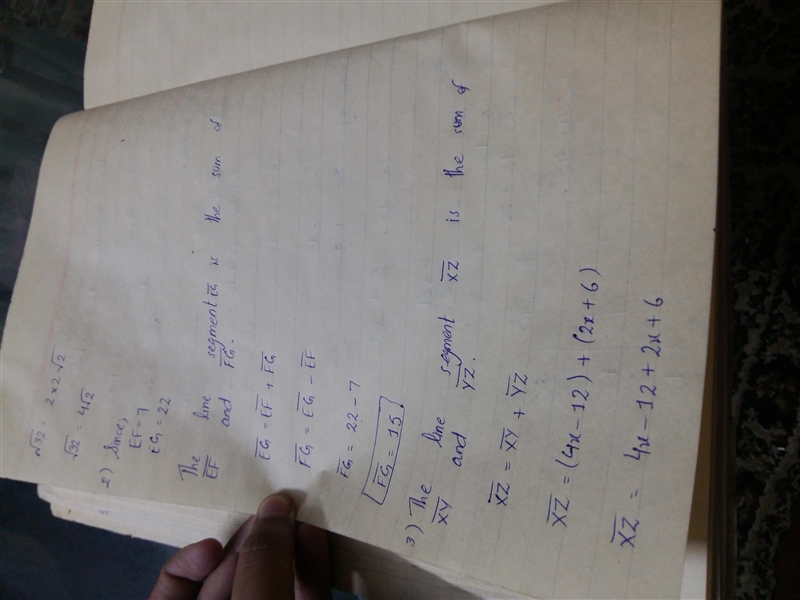 √32 = 2 × 2 √2
√32 = 4√2
2) Since,
EF = 7
EG = 22
The line segment EG is the sum of
EF and FG.
EG = EF + FG
FG = EG - EF
FG = 22 - 7
FG = 15
3) The line segment XZ is the sum of
XY and YZ.
XZ = XY + YZ
XZ = (4x - 12) + (2x + 6)
XZ = 4x - 12 + 2x + 6